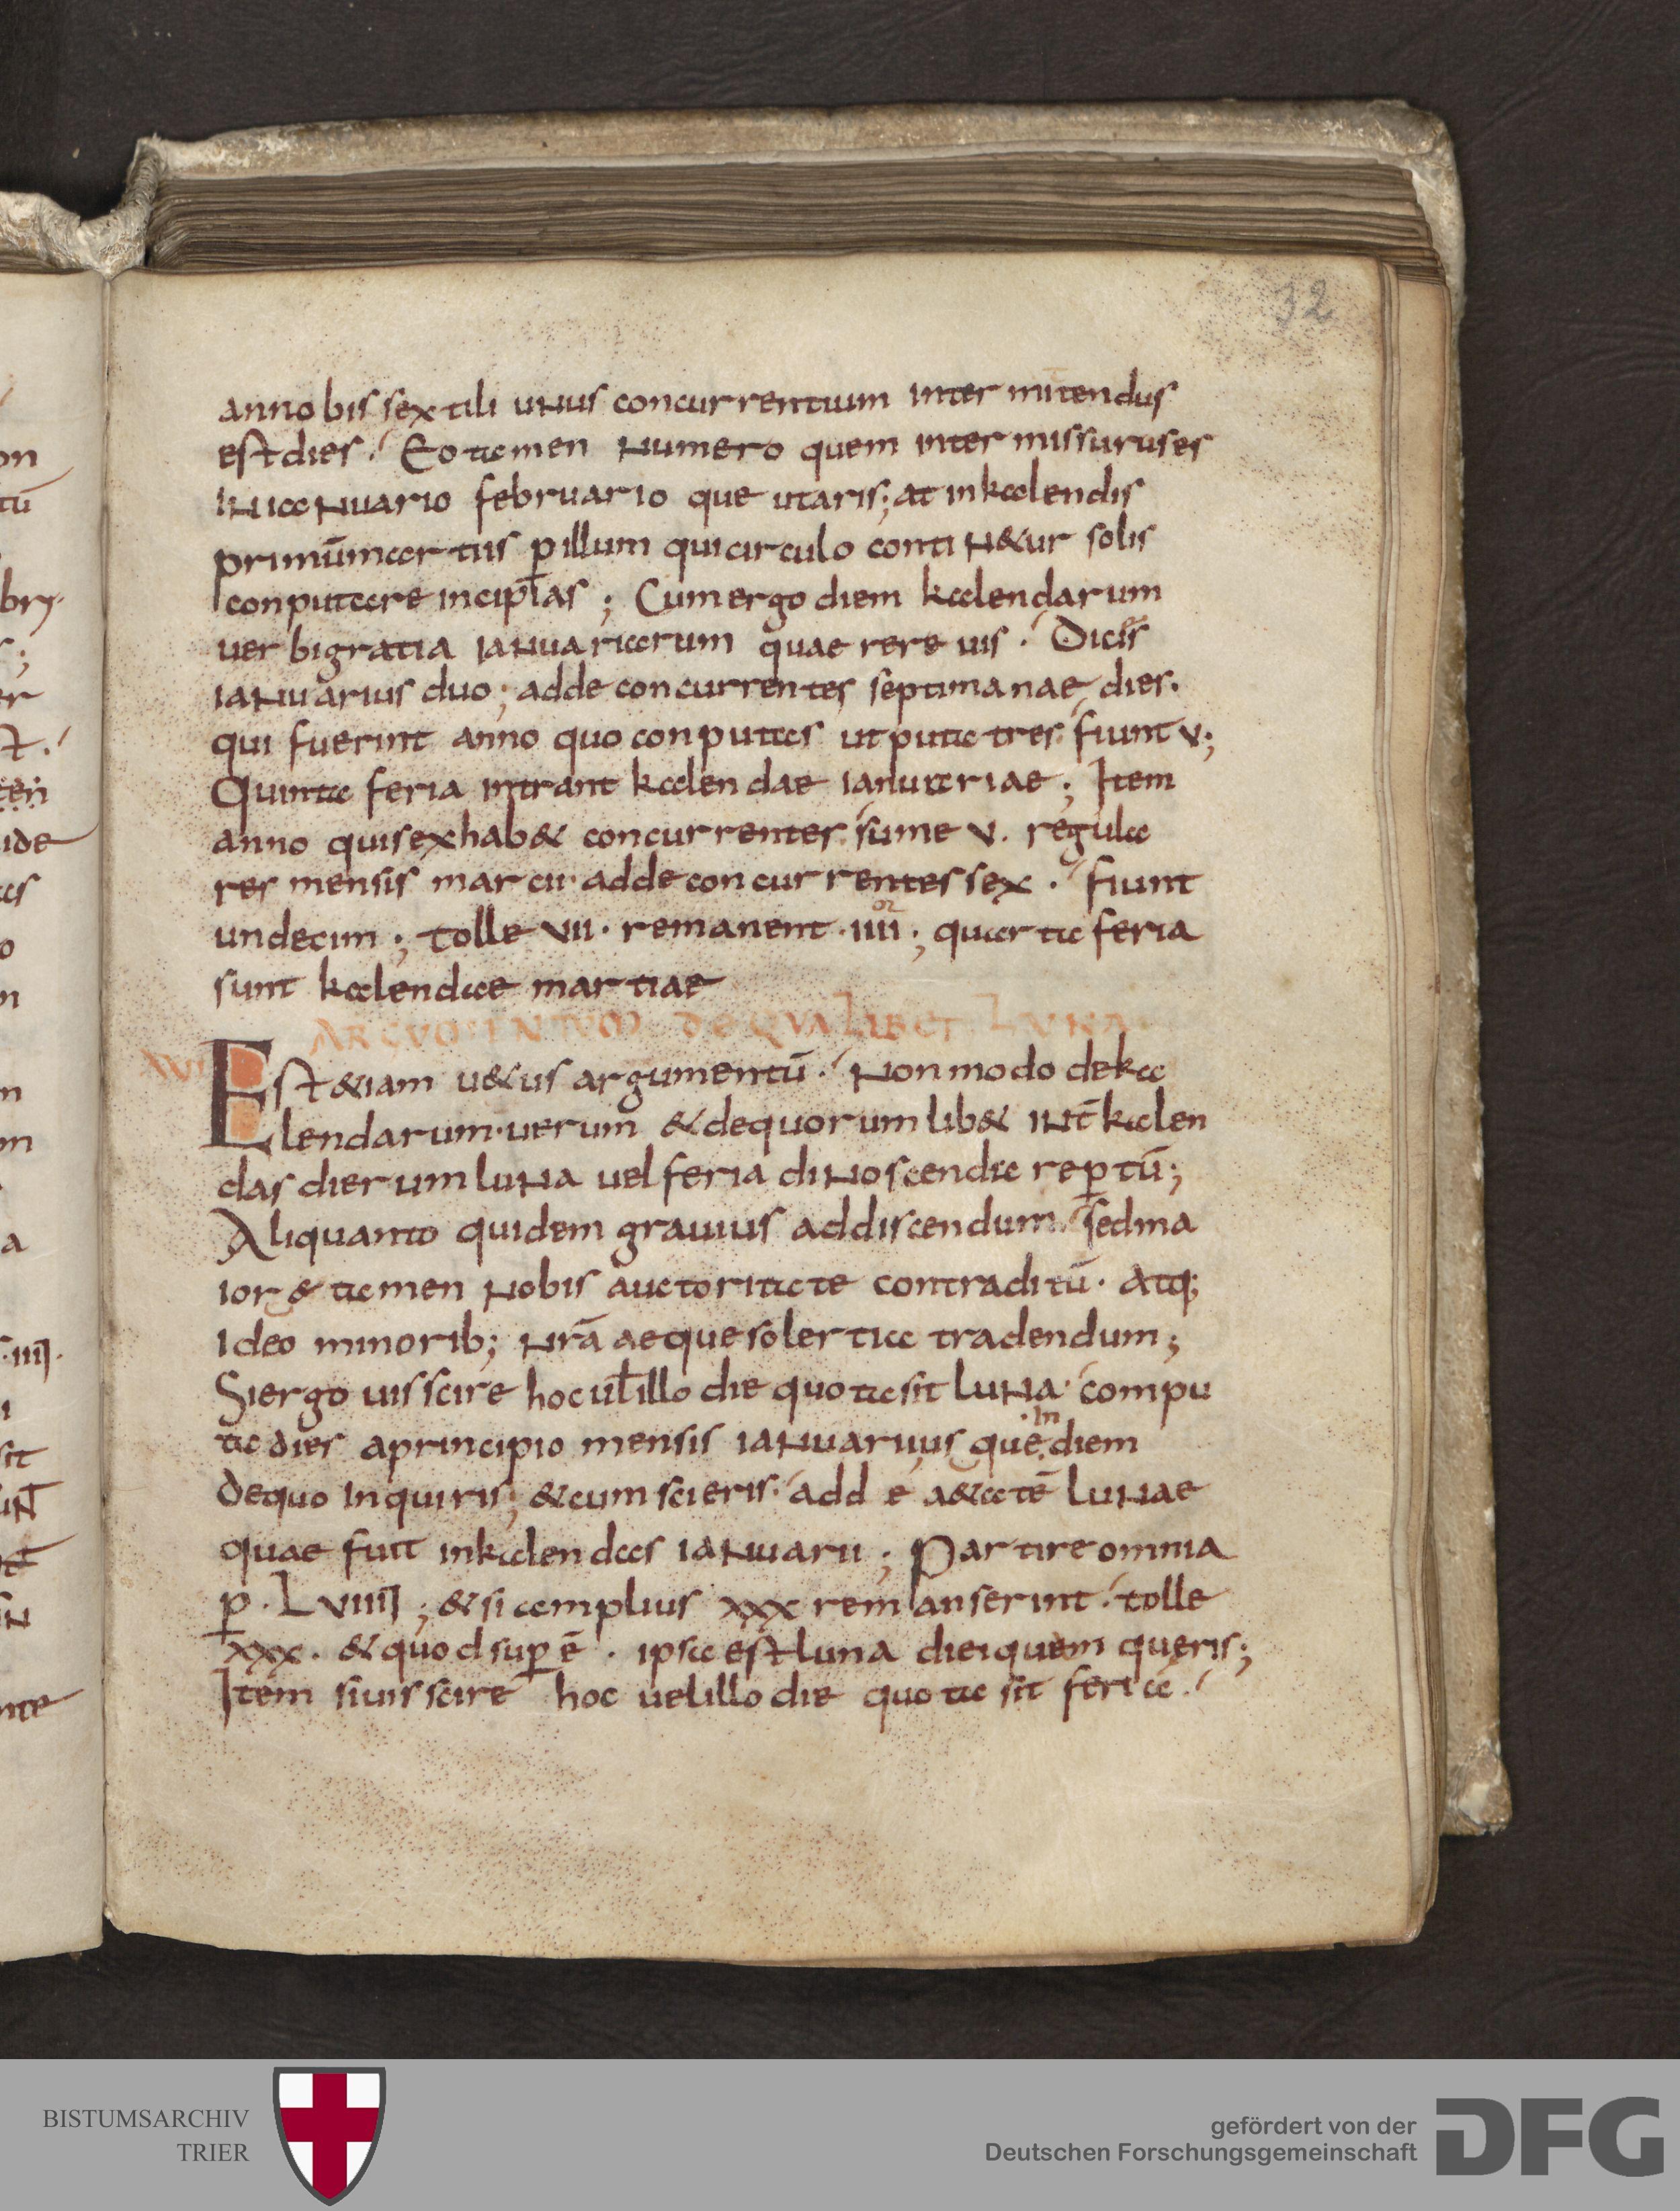 32
anno bissextili unus concurrentium intermittendus
est dies. Eo tamen numero quem intermissurus es
in ianuario februario que utaris; at in kalendis
primū martiis p̱ illum qui circulo contin&ur solis
conputare incipias; Cum ergo diem kalendarum
uerbi gratia ianuariarum quaerere uis. Dicis
ianuarius duo; adde concurrentes septimanae dies.
qui fuerint anno quo conputas ut puta tres fiunt v;
Quinta feria intrant kalendae ianuariae; Item
anno qui sex hab& concurrentes sume v. regula
res mensis marcii adde concurrentes sex. fiunt
undecim; tolle vii. remanent .iiii; quarta feria
sunt kalendae martiae
DE QUALIBET LUNA
Est &iam u&us argumentū. Non modo de ka
lendarum. uerum & de quorumlib& int̄ kalen
das dierum luna uel feria dinoscenda rep̱tū;
Aliquanto quidem grauius ad discendum. sed ma
iore tamen nobis auctoritate contraditū. atq;
ideo minorib; nr̄a aeque solertia tradendum;
Si ergo uis scire hoc ul̄ illo die quota sit luna. compu
ta dies a principio mensis ianuarii usque in diem
de quo inquiris; & cum scieris. adde a&atē lunae
quae fuit in kalendas ianuarii; Partire omnia
p̱. Lviiii; & si amplius xxx remanserint. tolle
xxx. & quod sup̱ ē. ipsa est luna diei quem queris;
Item si uis scire hoc uel illo die quota sit feria.
BISTUMSARCHIV
TRIER
gefördert von der
Deutschen Forschungsgemeinschaft
DFG